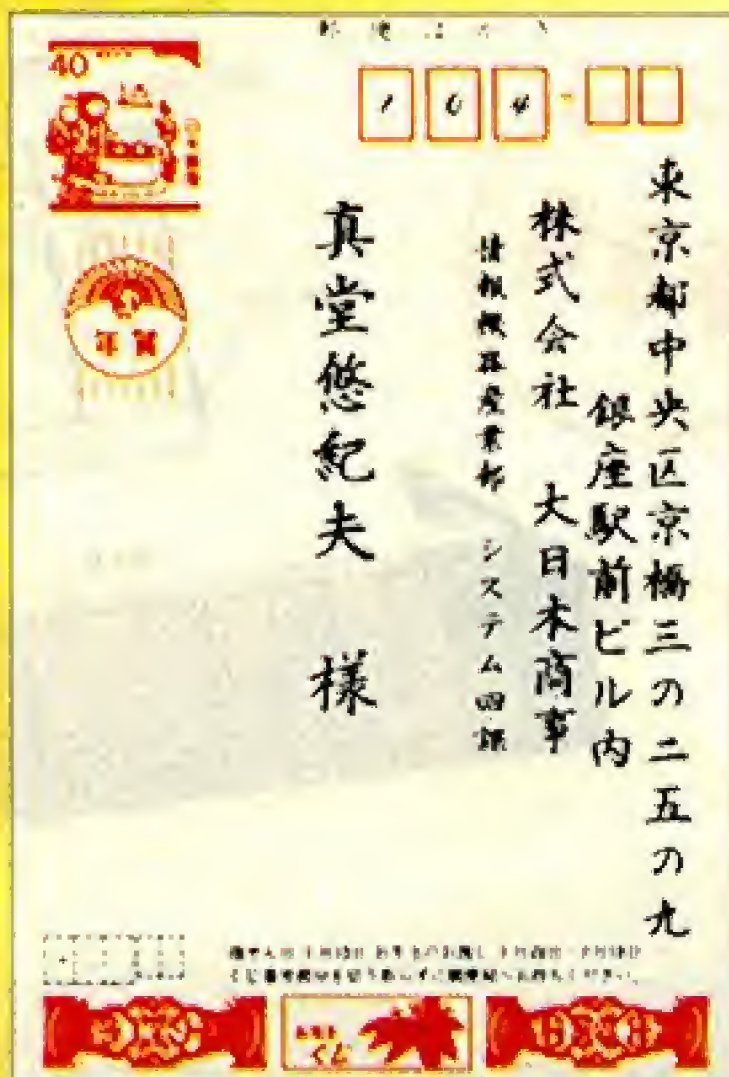 郵便はがき
40
104-
東京都中央区京橋三の二五の九
銀座駅前ビル内
株式会社 大日本商事
情報機器産業部 システム四課
真堂悠紀夫 様
年賀
お年玉
くじ